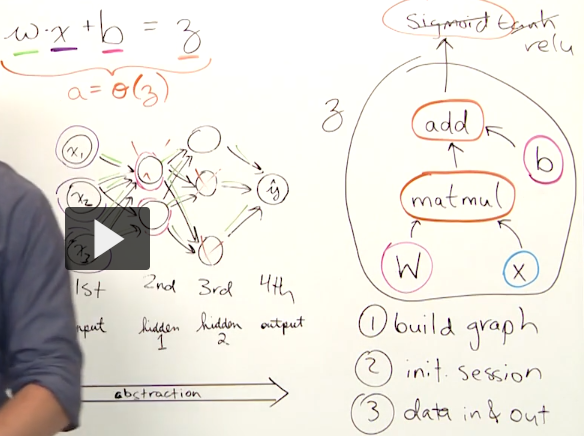 w·x + b = z
a = σ(z)
x₁
x₂
x₃
ŷ
1st 2nd 3rd 4th
input hidden hidden output
1 2
abstraction
sigmoid tanh
relu
z
add
b
matmul
W
x
① build graph
② init. session
③ data in & out